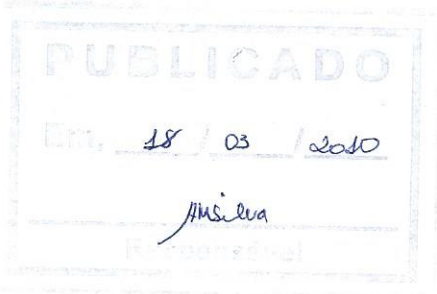 PUBLICADO
Em, 18 / 03 / 2010
AMSilva
Responsável